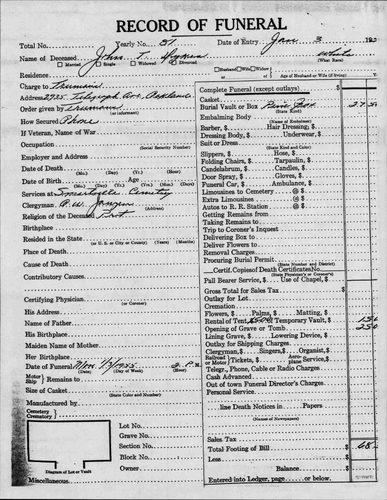 RECORD OF FUNERAL
Total No. Yearly No. 51 Date of Entry Jan 3 195
Name of Deceased John T. White
Married Single Widowed Divorced (What Race)
Residence Husband Wife Widow of Age of Husband or Wife (if living) Y
Charge to Truman
Address 2935 Telegraph Ave, Oakland
Order given by Truman
(or informant)
How Secured Phone
If Veteran, Name of War
Occupation
(Social Security Number)
Employer and Address
Date of Death
(Mo.) (Day) (Yr.) (Hour)
Date of Birth Age
(Mo.) (Day) (Yr.) (Yrs.) (Mo.) (Days)
Services at Smartsville Cemetery
Clergyman P. W. Janzen
(Address)
Religion of the Deceased Prot.
Birthplace
Resided in the State
(or U. S. or City or County) (Years) (Months)
Place of Death
Cause of Death
Contributory Causes
Certifying Physician
(or Coroner)
His Address
Name of Father
His Birthplace
Maiden Name of Mother
Her Birthplace
Date of Funeral Mon. 1955 2 P. M
(Date) (Day of Week) (Hour)
Motor Ship Remains to
Size of Casket
(State Color and Number)
Manufactured by
Cemetery
Crematory
Lot No.
Grave No.
Section No.
Block No.
Owner
Diagram of Lot or Vault
Miscellaneous
Complete Funeral (except outlays) $
Casket
Burial Vault or Box Pine Box
(State Kind)
Embalming Body
(Name of Embalmer)
Barber, $ Hair Dressing, $
Dressing Body, $ Underwear, $
Suit or Dress
(State Kind and Color)
Slippers, $ Hose, $
Folding Chairs, $ Tarpaulin, $
Candelabrum, $ Candles, $
Door Spray, $ Gloves, $
Funeral Car, $ Ambulance, $
Limousines to Cemetery @ $
Extra Limousines @ $
Autos to R. R. Station @ $
Getting Remains from
Taking Remains to
Trip to Coroner's Inquest
Delivering Box to
Deliver Flowers to
Removal Charges
Procuring Burial Permit
(State Number and District)
Certif. Copies of Death Certificates No.
(State Physician's or Coroner's)
Pall Bearer Service, $ Use of Chapel, $
Gross Total for Sales Tax $
Outlay for Lot
Cremation
Flowers, $ Palms, $ Matting, $
Rental of Tent, $ Temporary Vault, $
Opening of Grave or Tomb 250
Lining Grave, $ Lowering Device, $
Outlay for Shipping Charges
Clergyman, $ Singers, $ Organist, $
Railroad or Motor Tickets, $ Aero Trans Service, $
Telegr., Phone, Cable or Radio Charges
Cash Advanced
Out of town Funeral Director's Charges
Personal Service
line Death Notices in Papers
(Names of Newspapers)
Sales Tax
Total Footing of Bill $
Less $
Balance $
Entered into Ledger, page or below. $